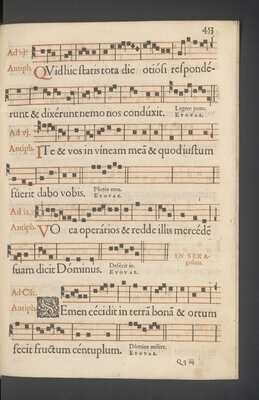 453
Ad iij.
Antiph. QVid hic statis tota die otiósi respondé-
runt & dixérunt nemo nos conduxit. Legem pone. EVOVAE.
Ad vj.
Antiph. ITe & vos in víneam meā & quod iustum
fúerit dabo vobis. EVOVAE.
Ad ix.
Antiph. VOca operários & redde illis mercédē
suam dicit Dóminus. Deficit in. EVOVAE.
IN SEXA-
gesima.
Ad Cōp.
Antiph. SEmen cécidit in terrā bonā & ortum
fecit fructum céntuplum. Dóminus míhi re. EVOVAE.
Q q iij